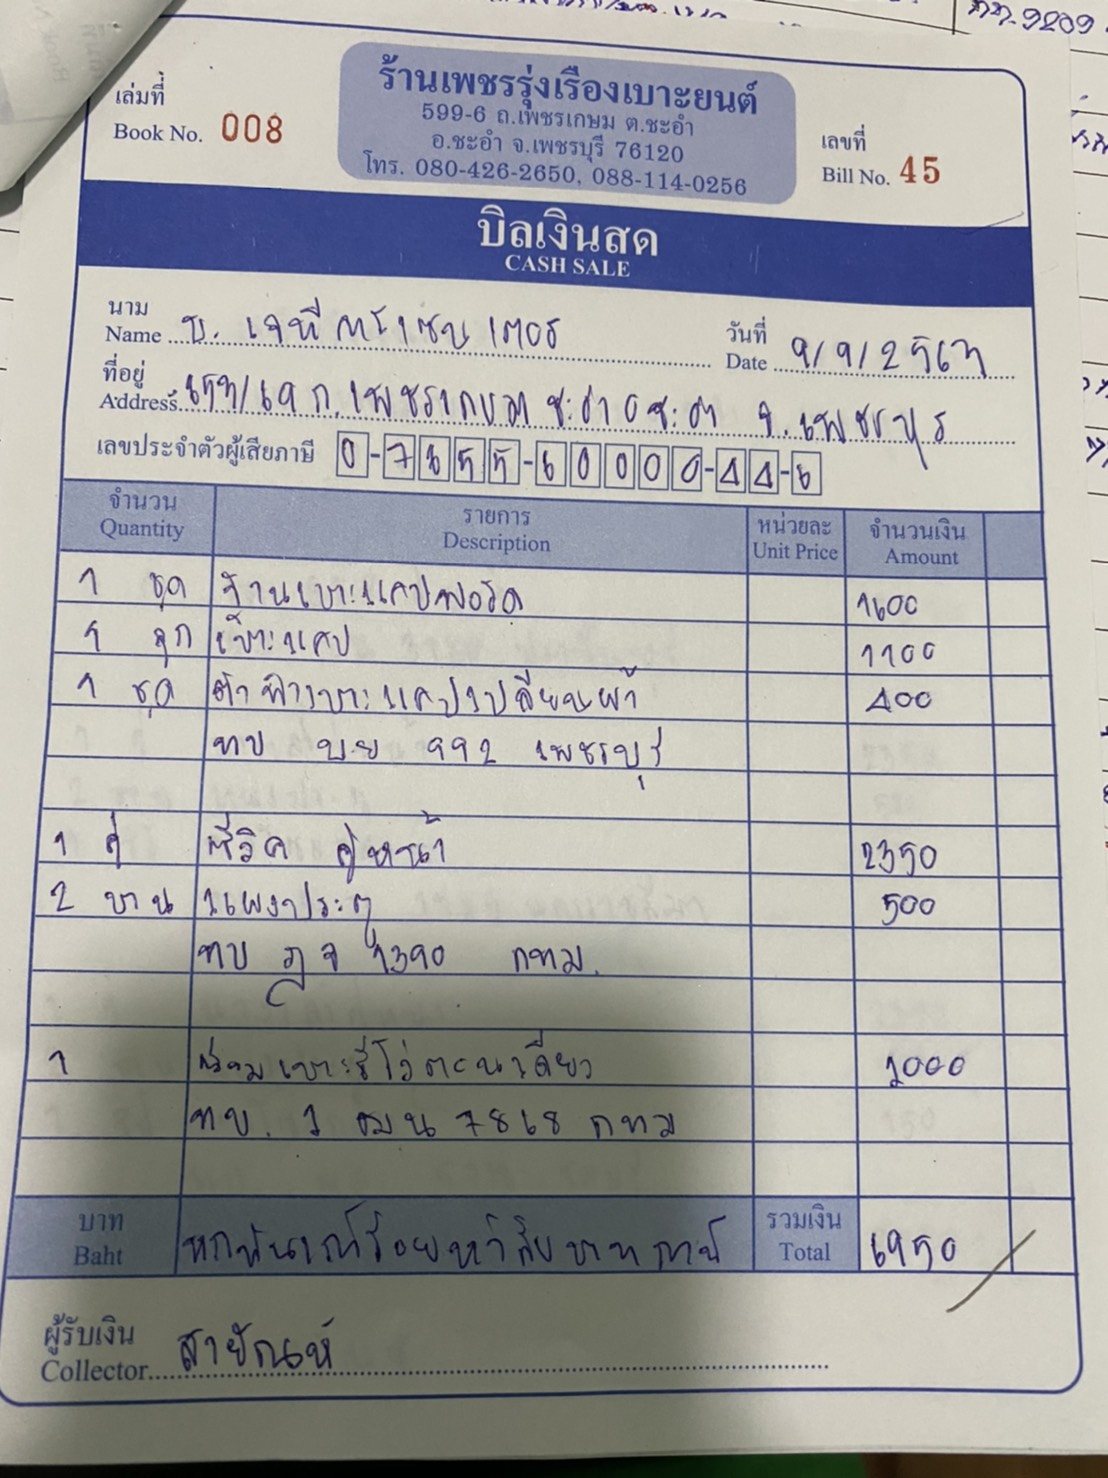 เล่มที่
Book No. 008
ร้านเพชรรุ่งเรืองเบาะยนต์
599-6 ถ.เพชรเกษม ต.ชะอำ
อ.ชะอำ จ.เพชรบุรี 76120
โทร. 080-426-2650, 088-114-0256
เลขที่
Bill No. 45
บิลเงินสด
CASH SALE
นาม
Name บ. เจทีคาร์เซนเตอร์
วันที่
Date 9/9/2563
ที่อยู่
Address ถ.เพชรเกษม ชะอำ อ ชะอำ จ.เพชรบุรี
เลขประจำตัวผู้เสียภาษี 0-7655-60000-44-6
จำนวน รายการ หน่วยละ จำนวนเงิน
Quantity Description Unit Price Amount
1 ชุด ฐานเบาะแคปฟอร์ด 1600
1 ลูก เบาะแคป 1100
1 ชุด เบาะแคปเปลี่ยนผ้า 400
ทบ บย 992 เพชรบุรี
1 คู่ ซีวิค คู่หน้า 2350
2 บาน แผงประตู 500
ทบ ฎจ 1390 กทม.
1 ซ่อมเบาะรีโว่ตอนเดียว 1000
ทบ. 1 ฒน 7868 กทม
บาท รวมเงิน
Baht หกพันเก้าร้อยห้าสิบบาทถ้วน Total 6950
ผู้รับเงิน
Collector สายัณห์